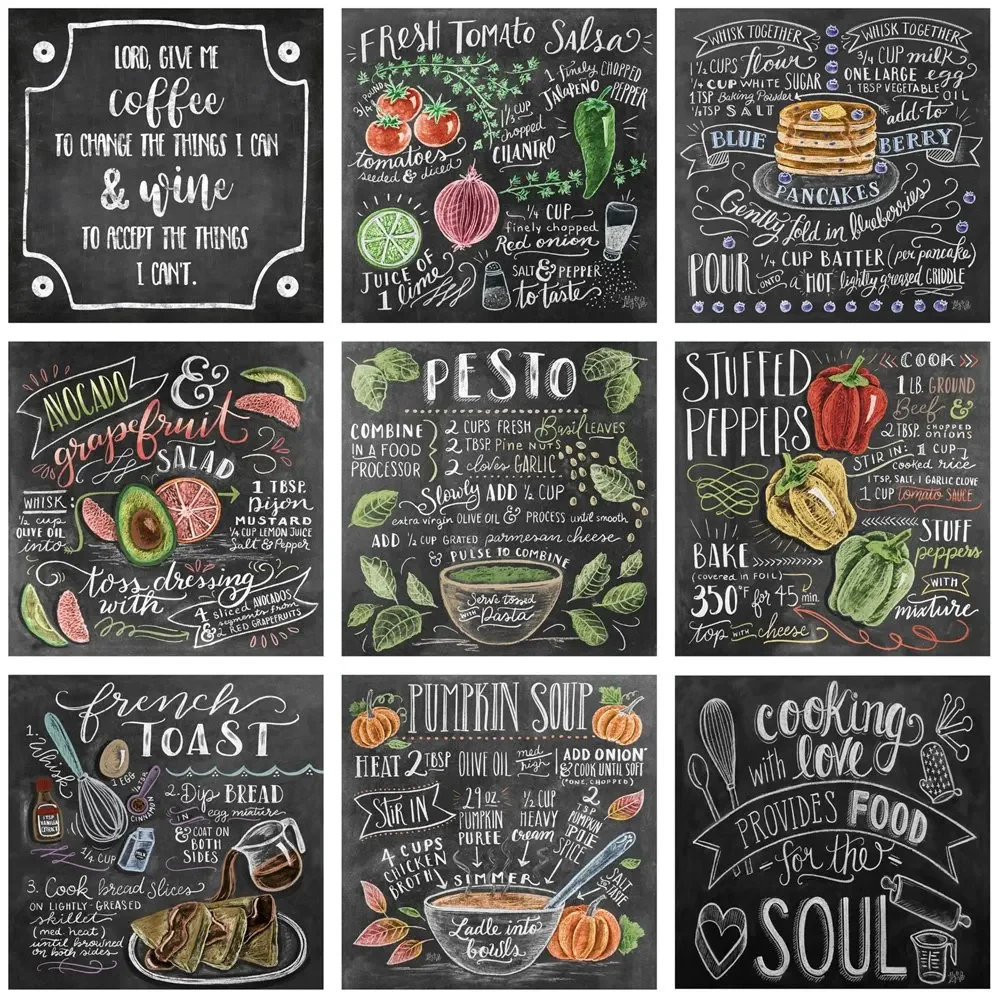 LORD, GIVE ME
coffee
TO CHANGE THE THINGS I CAN
& wine
TO ACCEPT THE THINGS
I CAN'T.
FRESH TOMATO SALSA
3/4 POUND
tomatoes
seeded & diced
1/3 CUP
chopped
CILANTRO
1 finely CHOPPED
JALAPEÑO PEPPER
1/4 CUP
finely chopped
Red onion
JUICE OF
1 lime
SALT & PEPPER
to taste
Lily & Val
WHISK TOGETHER
1 1/2 CUPS flour
1/4 CUP WHITE SUGAR
1 TSP Baking Powder
1/2 TSP SALT
WHISK TOGETHER
3/4 CUP milk
ONE LARGE egg
1 TBSP VEGETABLE OIL
add to
BLUE BERRY
PANCAKES
Gently fold in blueberries
POUR 1/4 CUP BATTER (per pancake)
ONTO a HOT lightly greased GRIDDLE
AVOCADO &
grapefruit
SALAD
WHISK
1/2 cup
OLIVE OIL
into
1 TBSP.
Dijon
MUSTARD
1/4 CUP LEMON JUICE
Salt & Pepper
toss dressing
with
4 sliced AVOCADOS
& segments from
2 RED GRAPEFRUITS
PESTO
COMBINE
IN A FOOD
PROCESSOR
2 CUPS FRESH Basil LEAVES
2 TBSP. Pine NUTS
2 cloves GARLIC
Slowly ADD 1/2 CUP
extra virgin OLIVE OIL & PROCESS until smooth
ADD 1/2 CUP GRATED parmesan cheese
& PULSE TO COMBINE
Serve tossed
with Pasta
STUFFED
PEPPERS
COOK
1 LB. GROUND
Beef &
2 TBSP. CHOPPED onions
STIR IN: 1 CUP
cooked rice
1 TSP. SALT, 1 GARLIC CLOVE
1 CUP tomato SAUCE
STUFF
peppers
WITH
mixture
BAKE
(covered in FOIL)
350°F for 45 min.
top WITH cheese
french
TOAST
1. Whisk
1 EGG
1 TSP
VANILLA
EXTRACT
CINNAMON
1/4 CUP
2. Dip BREAD
IN egg mixture
& COAT ON
BOTH
SIDES
3. Cook bread slices
ON LIGHTLY-GREASED
skillet
(med. heat)
until browned
on both sides
PUMPKIN SOUP
HEAT 2 TBSP OLIVE OIL med-high
ADD ONION
& COOK UNTIL SOFT
(ONE, CHOPPED)
STIR IN
29 oz.
PUMPKIN
PUREE
1/2 CUP
HEAVY
cream
2 TSP
PUMPKIN
PIE
SPICE
4 CUPS
CHICKEN
BROTH
SIMMER
SALT
TO TASTE
Ladle into
bowls
cooking
with love
PROVIDES FOOD
for the
SOUL